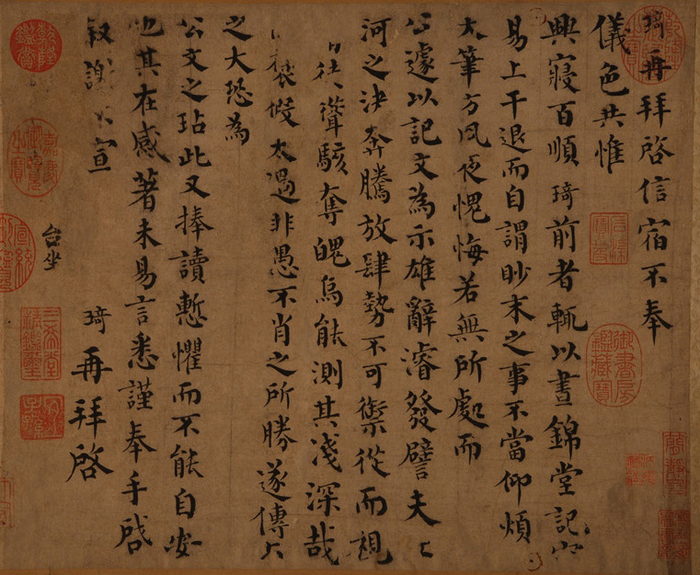 琦再拜啓信宿不奉
儀色共惟
興寢百順琦前者輒以晝錦堂記容
易上干退而自謂眇末之事不當仰煩
大筆方夙夜愧悔若無所處而
公遽以記文為示雄辭濬發譬夫江
河之決奔騰放肆勢不可禦從而觀
徒聳駭奪魄烏能測其淺深哉
褒假太過非愚不肖之所勝遂傳
之大恐為
公文之玷此又捧讀慙懼而不能自安
也其在感著未易言悉謹奉手啓
叙謝不宣 琦再拜啓
台坐
乾隆鑑賞
三希堂精鑑璽
宜子孫